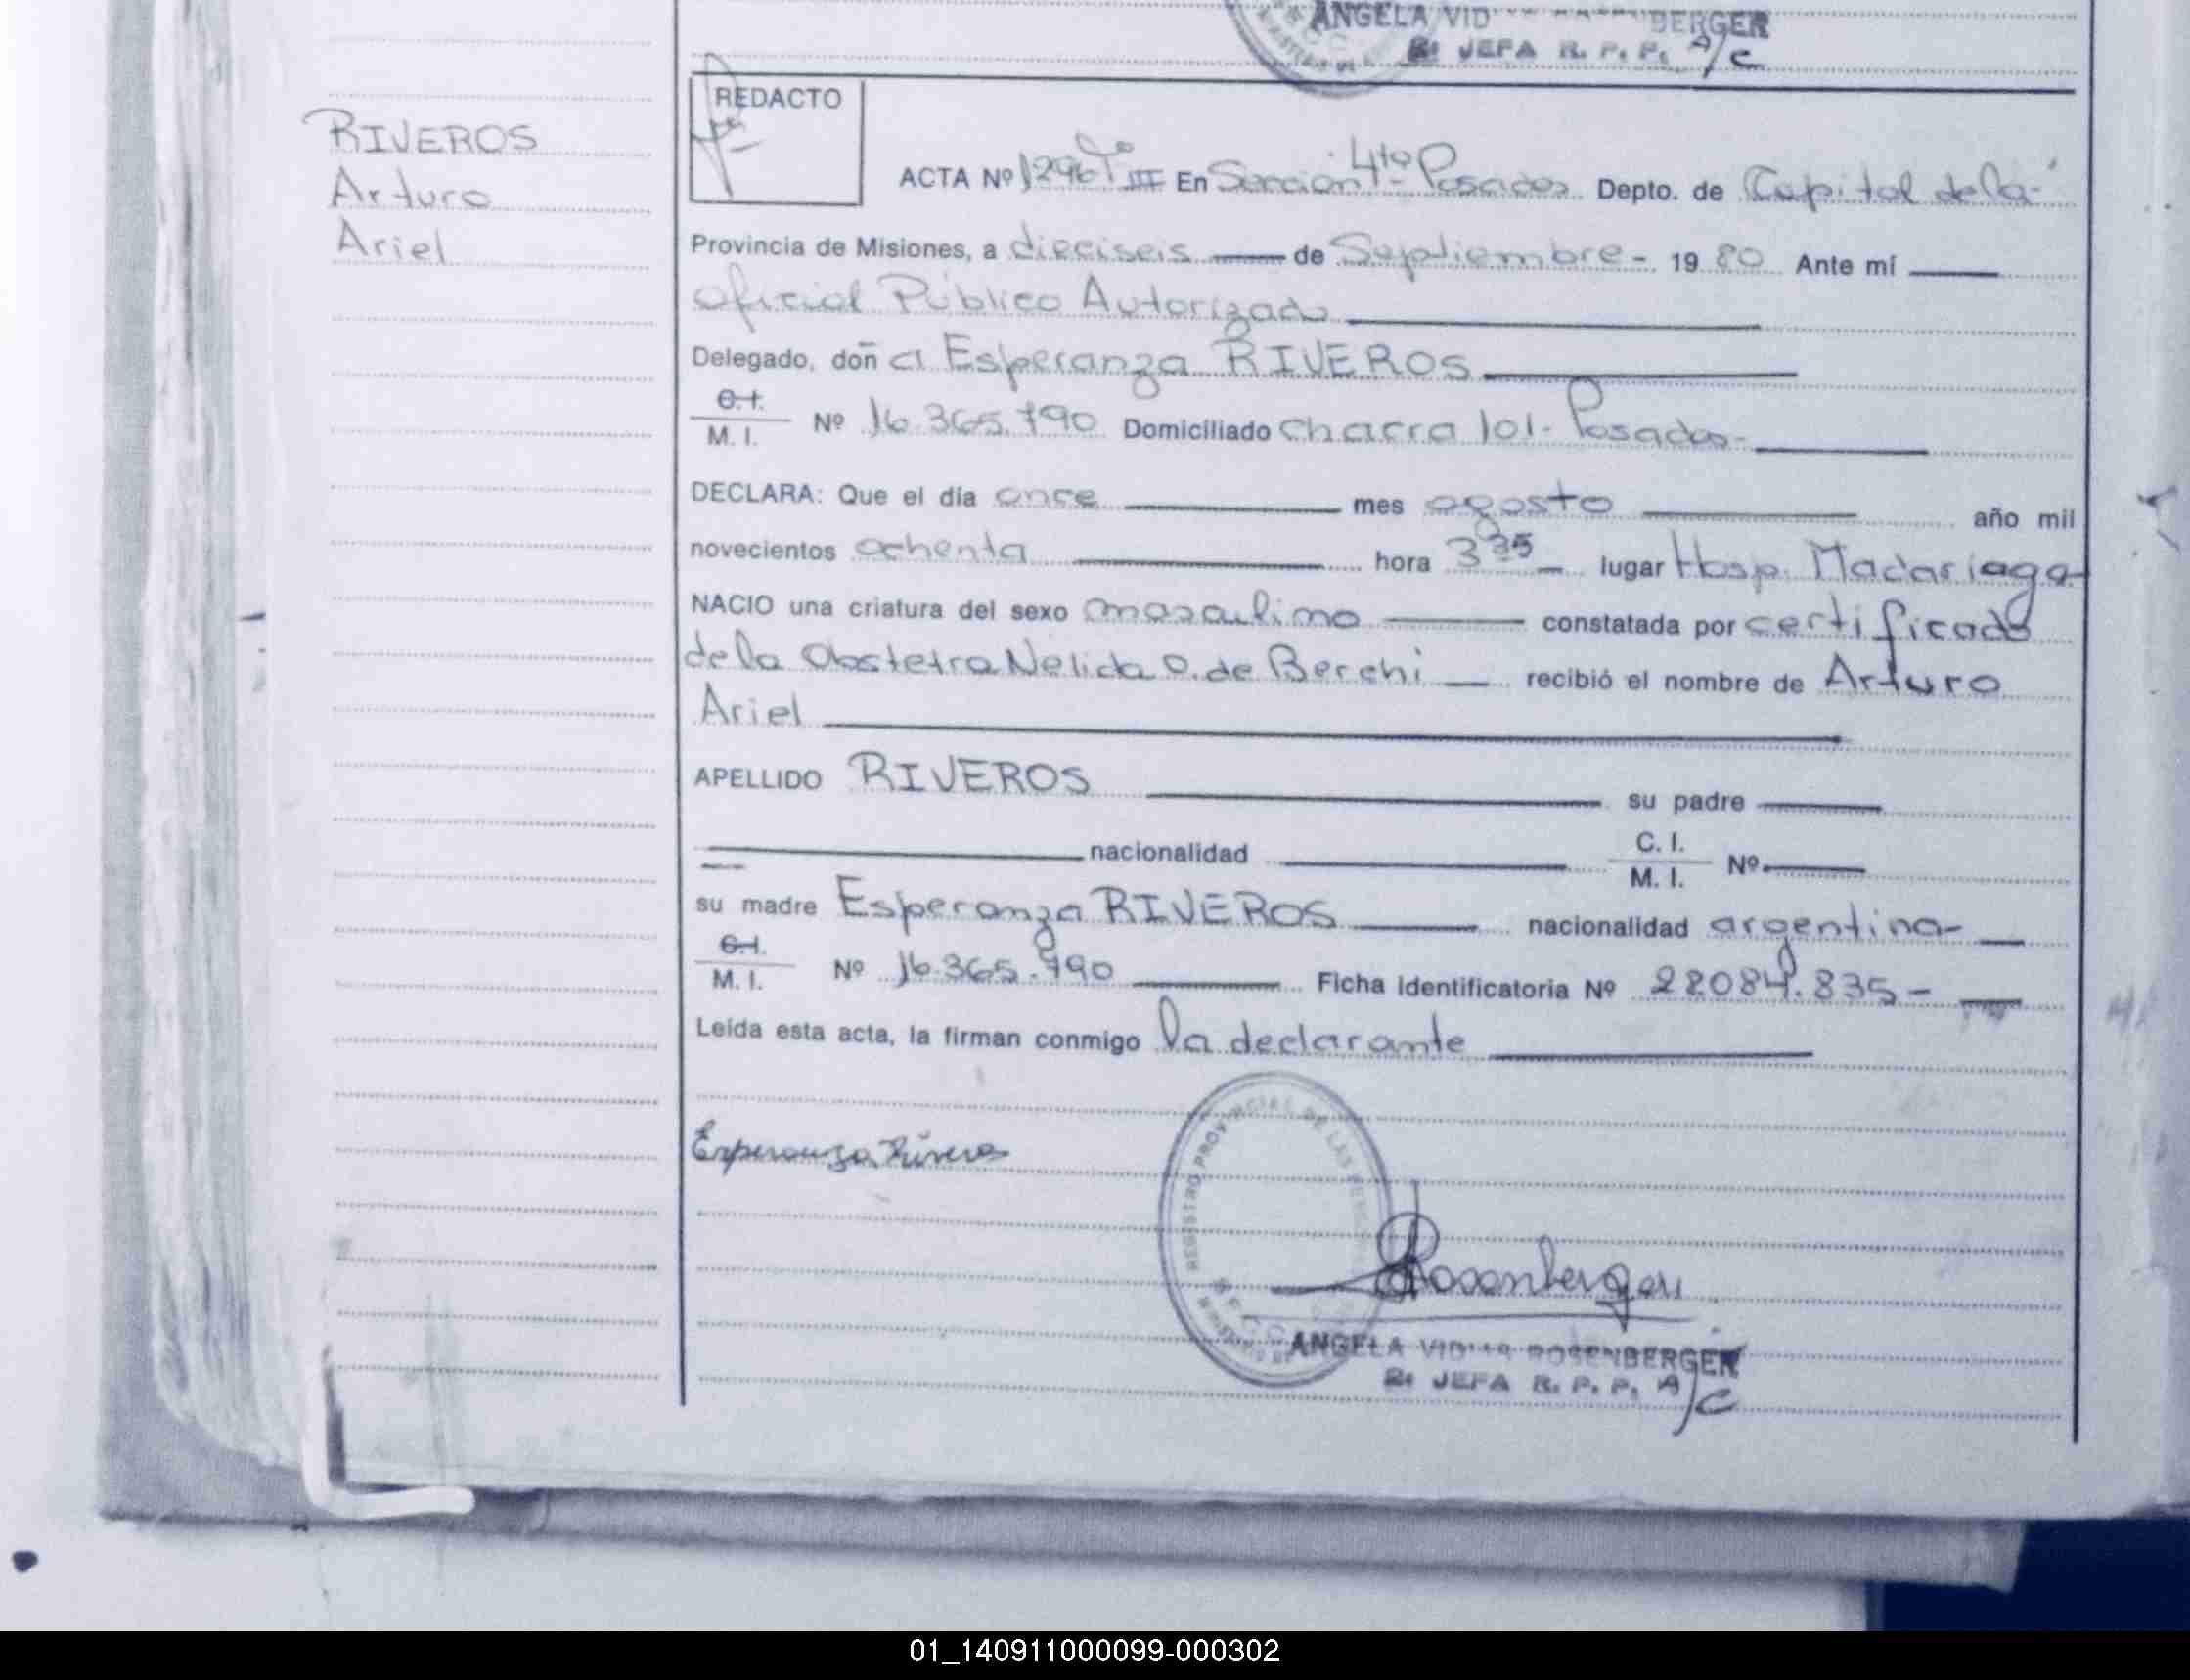 ANGELA VID BERGER
JEFA R. P. P. A/C
RIVEROS
Arturo
Ariel
REDACTO
ACTA Nº 1296 Tº III En Sección 4ta Posadas Depto. de Capital de la
Provincia de Misiones, a dieciseis de Septiembre - 1980 Ante mí
Oficial Público Autorizado
Delegado, doña Esperanza RIVEROS
C.I.
M. I. Nº 16.365.790 Domiciliado Chacra 101 - Posadas -
DECLARA: Que el día once mes agosto año mil
novecientos ochenta hora 3 35 lugar Hosp. Madariaga
NACIO una criatura del sexo masculino constatada por certificado
de la Obstetra Nelida O. de Berchi recibió el nombre de Arturo
Ariel
APELLIDO RIVEROS su padre
nacionalidad C. I.
M. I. Nº
su madre Esperanza RIVEROS nacionalidad argentina -
C.I.
M. I. Nº 16.365.790 Ficha identificatoria Nº 28084.835 -
Leída esta acta, la firman conmigo la declarante
Esperanza Riveros
REGISTRO PROVINCIAL DE LAS PERSONAS
Rosenberger
ANGELA VID ROSENBERGER
JEFA R. P. P. A/C
01_140911000099-000302